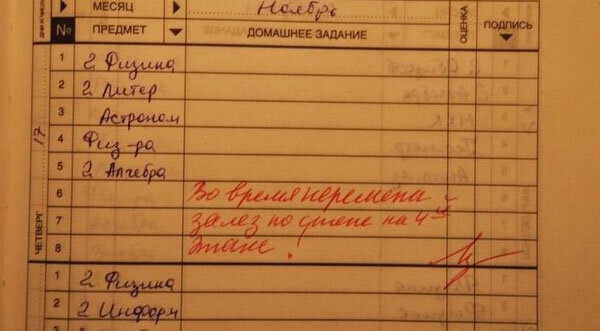 МЕСЯЦ Ноябрь
№ ПРЕДМЕТ ДОМАШНЕЕ ЗАДАНИЕ ОЦЕНКА ПОДПИСЬ
1 2 Физика
2 2 Литер
3 Астроном
4 Физ-ра
5 2 Алгебра
6 Во время перемены
7 залез по стене на 4ый
8 этаж!
ЧЕТВЕРГ 17
1 2 Физика
2 2 Информ